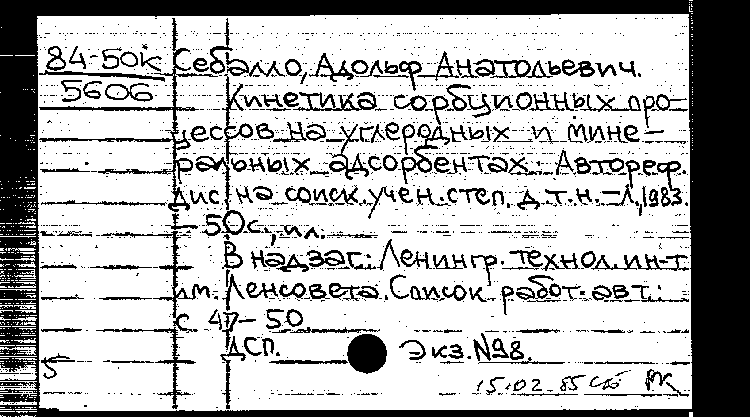 84-50к Себалло, Адольф Анатольевич.
5606 Кинетика сорбционных про-
цессов на углеродных и мине-
ральных адсорбентах: Автореф.
дис. на соиск. учен. степ. д.т.н. - Л., 1983.
- 50с., ил.
В надзаг.: Ленингр. технол. ин-т
им. Ленсовета. Список работ авт.:
с. 47-50.
ДСП. Экз. N98.
5
15.02.85